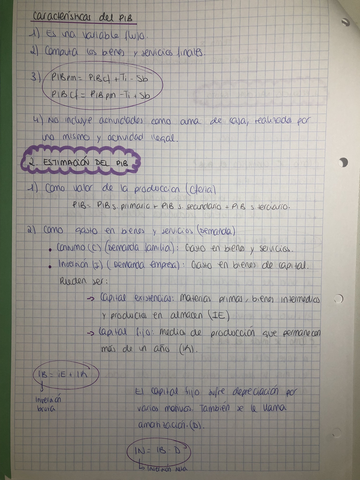 Características del PIB
1) Es una variable flujo.
2) Computa los bienes y servicios finales.
3) PIBpm = PIBcf + Ti - Sb
PIBcf = PIBpm - Ti + Sb
4) No incluye actividades como ama de casa, realizado por
uno mismo y actividad ilegal.
2. ESTIMACIÓN DEL PIB
1) Como valor de la producción (Oferta)
PIB = PIB s. primario + PIB s. secundario + PIB s. terciario
2) Como gasto en bienes y servicios (Demanda)
• Consumo (C) (Demanda familia): Gasto en bienes y servicios.
• Inversión (I) (Demanda empresa): Gasto en bienes de capital.
Pueden ser:
→ Capital existencias: Materias primas, bienes intermedios
y productos en almacen (IE)
→ Capital fijo: medios de producción que permanecen
más de un año (IK).
IB = IE + IK
Inversión
bruta
El capital fijo sufre depreciación por
varios motivos. También se le llama
amortización. (D).
IN = IB - D
Inversión neta